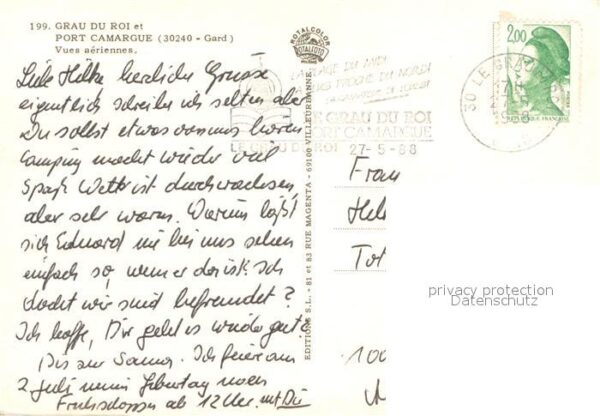 199. GRAU DU ROI et
PORT CAMARGUE (30240 - Gard)
Vues aériennes.
Liebe Hilke herzliche Grüsse
eigentlich schreibe ich selten aber
Du sollst etwas von uns hören
Camping macht wieder viel
Spaß Wetter ist durchwachsen,
aber sehr warm. Warum läßt
sich Eduard nie bei uns sehen
einfach so, wenn er da ist. Ich
dacht wir sind befreundet?
Ich hoffe, Dir geht es wieder gut.
Bis zur Sauna. Ich feiere am
2 Juli meinen Geburtag
Frühschoppen ab 12 Uhr. mit Dir
ROTALCOLOR
ROTALFOTO
EDITIONS S.L. - 81 et 83 RUE MAGENTA - 69100 VILLEURBANNE
LA PLAGE DU MIDI
LA PLUS PROCHE DU NORD
LE GRAU DU ROI
PORT CAMARGUE
LE GRAU DU ROI
27-5-88
30 LE GRAU
2,00
Frau
Hel
Tot
100
privacy protection
Datenschutz